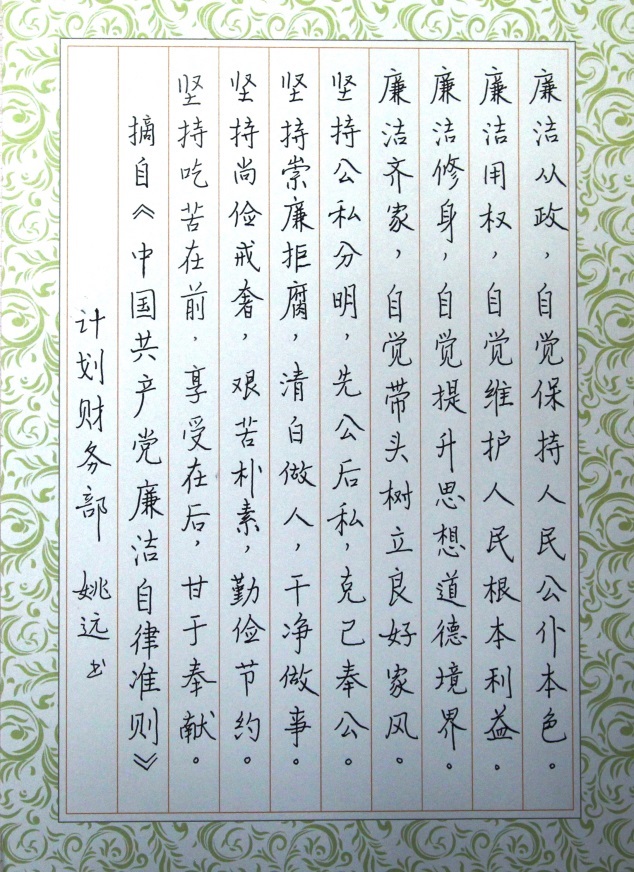 廉洁从政，自觉保持人民公仆本色。
廉洁用权，自觉维护人民根本利益。
廉洁修身，自觉提升思想道德境界。
廉洁齐家，自觉带头树立良好家风。
坚持公私分明，先公后私，克己奉公。
坚持崇廉拒腐，清白做人，干净做事。
坚持尚俭戒奢，艰苦朴素，勤俭节约。
坚持吃苦在前，享受在后，甘于奉献。
摘自《中国共产党廉洁自律准则》
计划财务部 姚远书